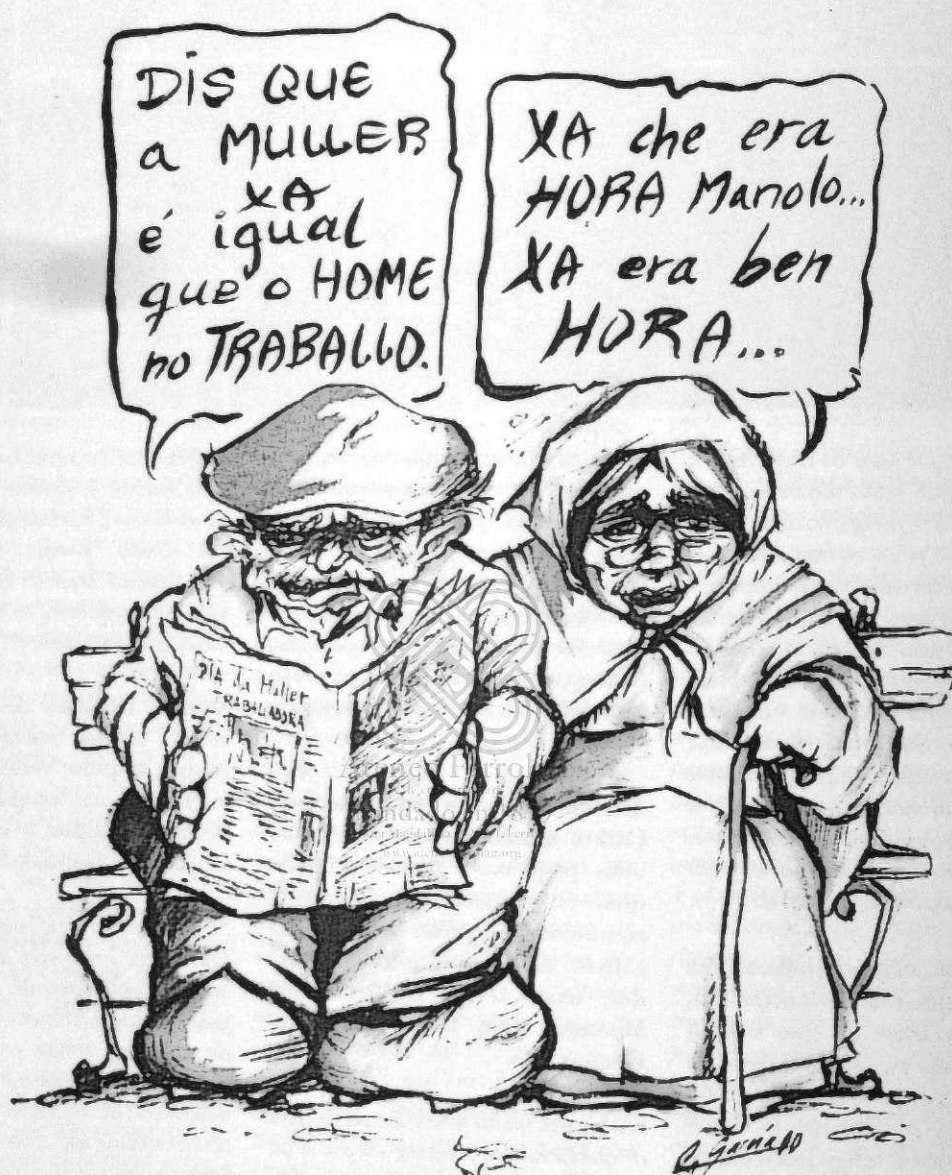 DIS QUE
a MULLER
XA
é igual
que o HOME
no TRABALLO.
XA che era
HORA Manolo...
XA era ben
HORA...
DÍA da Muller
TRABALLADORA